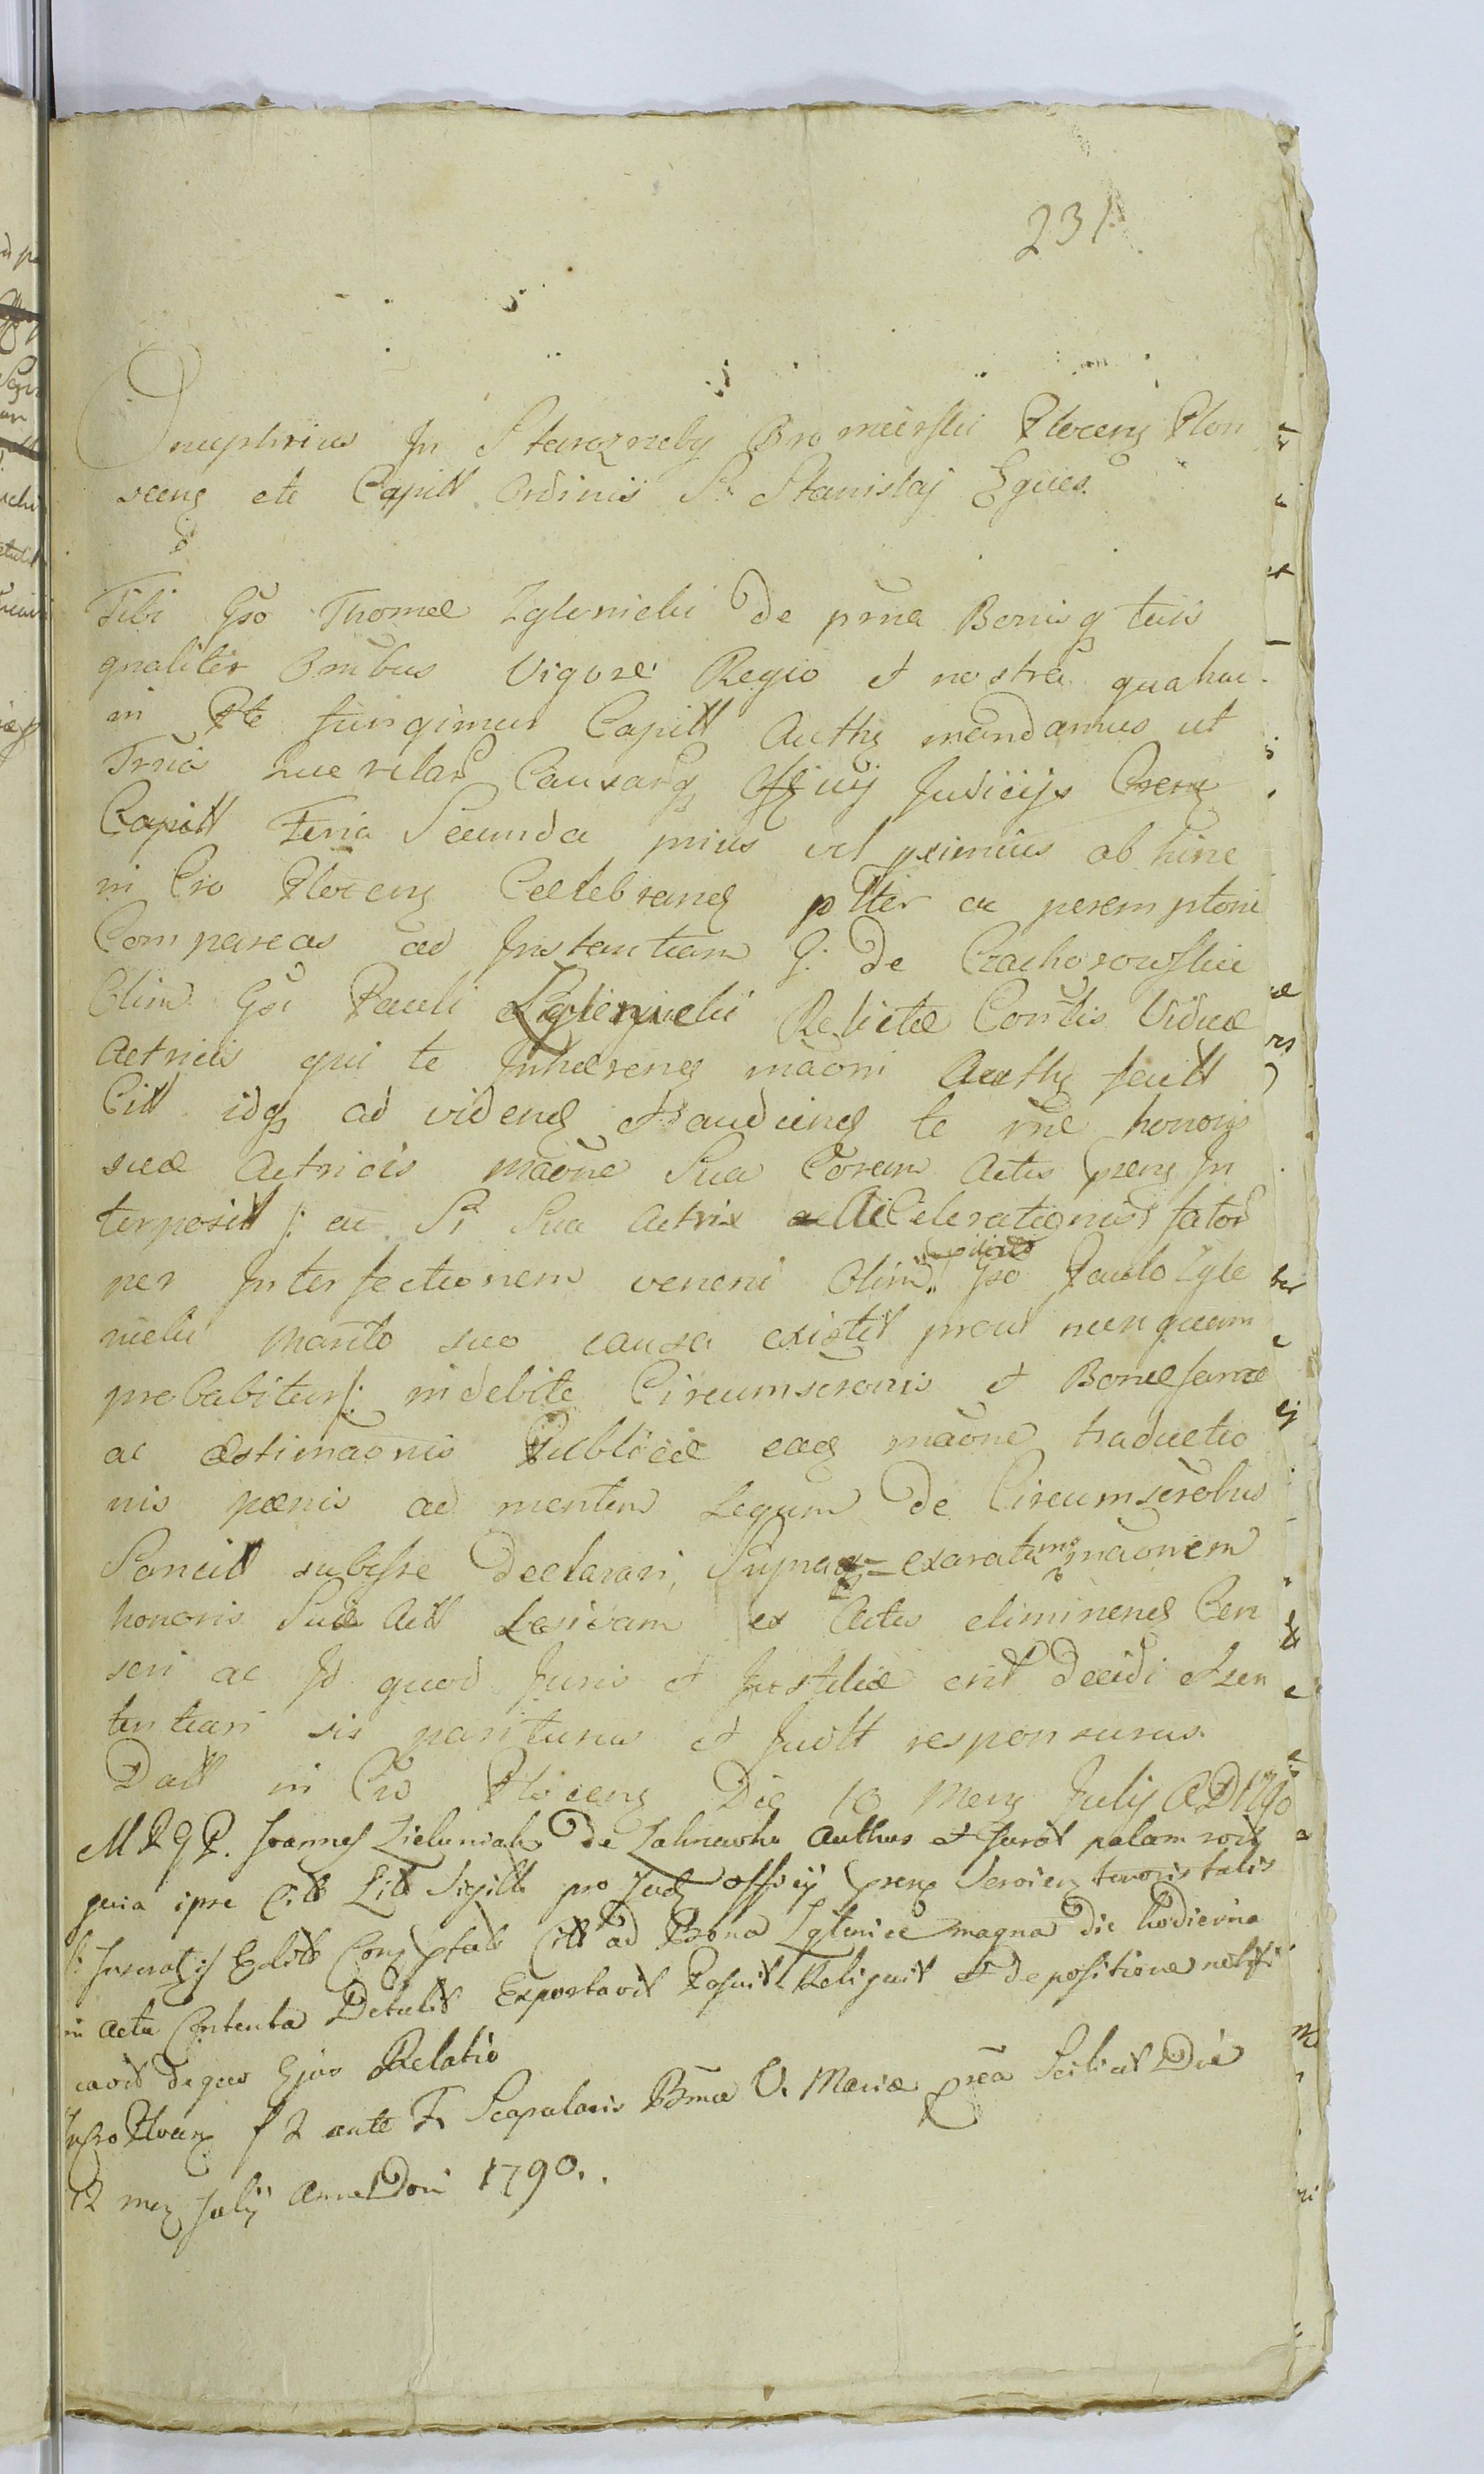 231
Onuphrius In Starozreby Bromierski Plocens Plon
scens etc Capitt Ordinis S. Stanislaj Eques
Tibi Gso Thomæ Zglenicki De psna Bonisq tuis
gnaliter Omibus Vigore Regio et nostra qua hac
in Pte fungimur Capitt Authe mandamus ut
Trnis Querelar Causarq Officij Judicijs Crens
Capitt Feria Secunda prius vel proximius ab hinc
in Cro Plocens Celebrand pltter ac peremptorie
Compareas ad Instantiam G. De Czachorowskie
Olim Gsi Pauli Zglenicki Relictæ Consortis Viduæ
Actricis qui te Inhærend maoni Authe factt
Citt idq ad vidend et audiend te rne honoris
suæ Actricis maone Sua Coram Actis prens In
terposit /: ac Si Sua Actrix Accelerationis fator
per Interfectionem veneni Olim Gso Paulo Zgle
nicki Marito suo causa existit prout nunquam
probabitur :/ indebite Circumscronis et Bonæ famæ
ac æstimaonis Publicæ ead maone traductio
nis pænis ad mentem Legum De Circumscrobus
Sancitt subesse Declarari, Supra exaratam maonem
honoris Suæ Actt Læsivam ex Actis eliminend Cen
seri ac Id quod Juris et Justitiæ erit Decidi et sen
tentiari sis pariturus et Judtt responsurus.
Datt in Cro Plocens Die 10 Mens Julij AD 1790
M R G P. Joannes Zieluniak De Zakrzewko Authus et Jurat palam rec
quia ipse Citt Litt Sigillt pro Jud Officij prens Servien tenoris talis
/: Inserat :/ Edit Cons ptatt Citt ad Bona Zglenice magna Die hodierna
in actu Contenta Detulit Exportavit Posuit Reliquit et de positione notifi
cavit De quo Ejus Relatio
In Cro Plocens f 2 ante F. Scapularis Bmæ V. Mariæ prea Scilicet Die
12 mens Julij Anno Doni 1790.